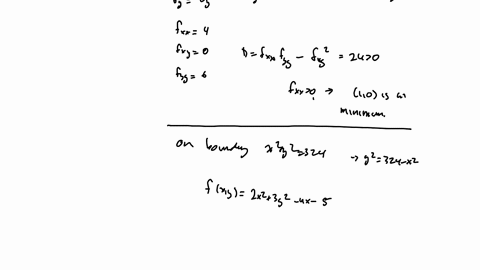 f_xx = 4
f_xy = 0 D = f_xx f_yy - f_xy^2 = 24 > 0
f_yy = 6
f_xx > 0 → (1,0) is a
minimum
on boundary x^2+y^2=324 → y^2=324-x^2
f(x,y) = 2x^2+3y^2-4x-5